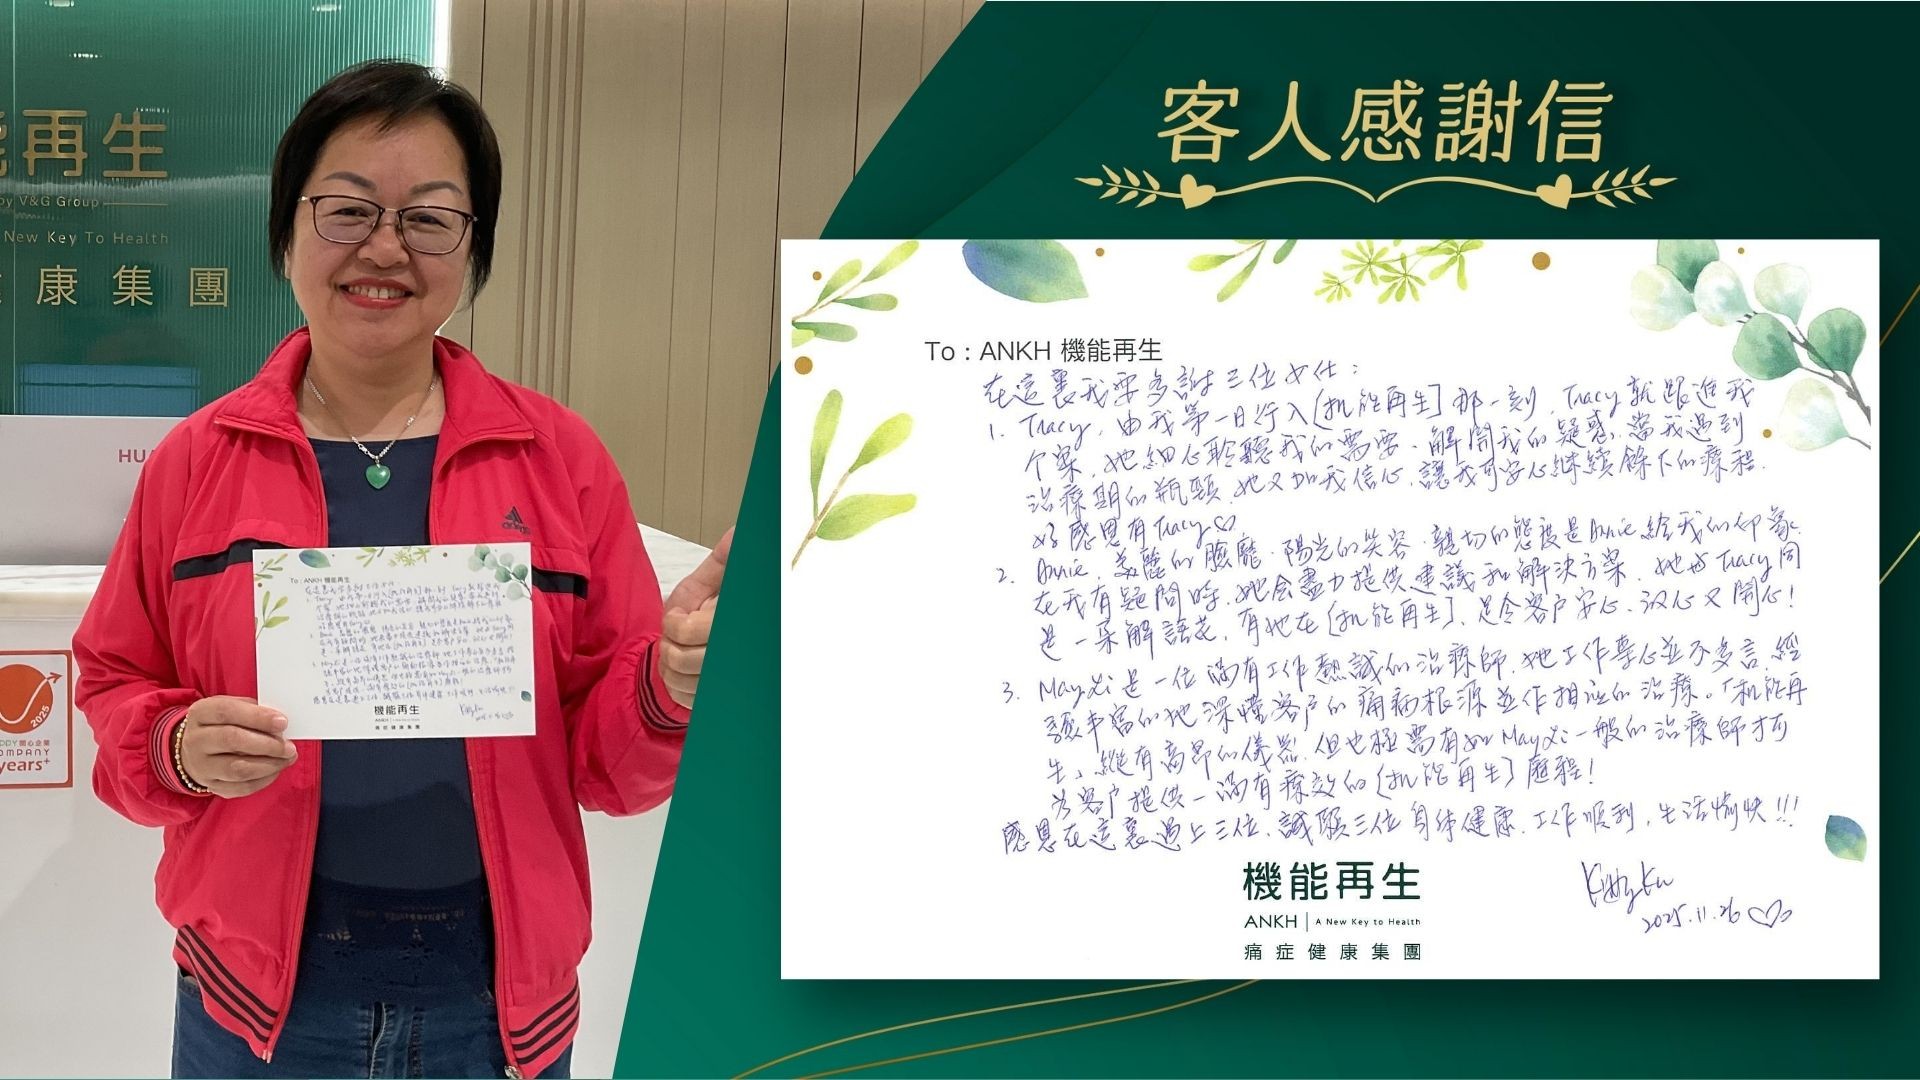 能再生
by V&G Group
New Key To Health
健康集團
HUA
adidas
2025
開心企業
COMPANY
years+
客人感謝信
To : ANKH 機能再生
在這裏我要多謝三位女仕：
1. Tracy, 由我第一日行入[机能再生]那一刻, Tracy就跟進我
个案, 她細心聆聽我的需要, 解開我的疑惑, 當我遇到
治療期的瓶頸, 她又加我信心, 讓我可安心継續餘下的療程.
好感恩有Tracy♡
2. Annie, 美麗的臉龐, 陽光的笑容, 親切的態度是Annie給我的印象.
在我有疑問時, 她会盡力提供建議和解決方案, 她与Tracy同
是一朵解語花, 有她在[机能再生], 是令客户安心、又開心!
3. May Li 是一位滿有工作熱誠的治療師, 她工作專心並不多言, 經
驗丰富的她深懂客户的痛病根源並作相应的治療。「机能再
生」縱有高昂的儀器, 但也極需有如May Li一般的治療師才可
为客户提供一滿有療效的[机能再生]歷程!
感恩在這裏遇上三位, 誠願三位身体健康, 工作順利, 生活愉快!!!
Kitty Ku
2025.11.26♡
機能再生
ANKH | A New Key to Health
痛症健康集團